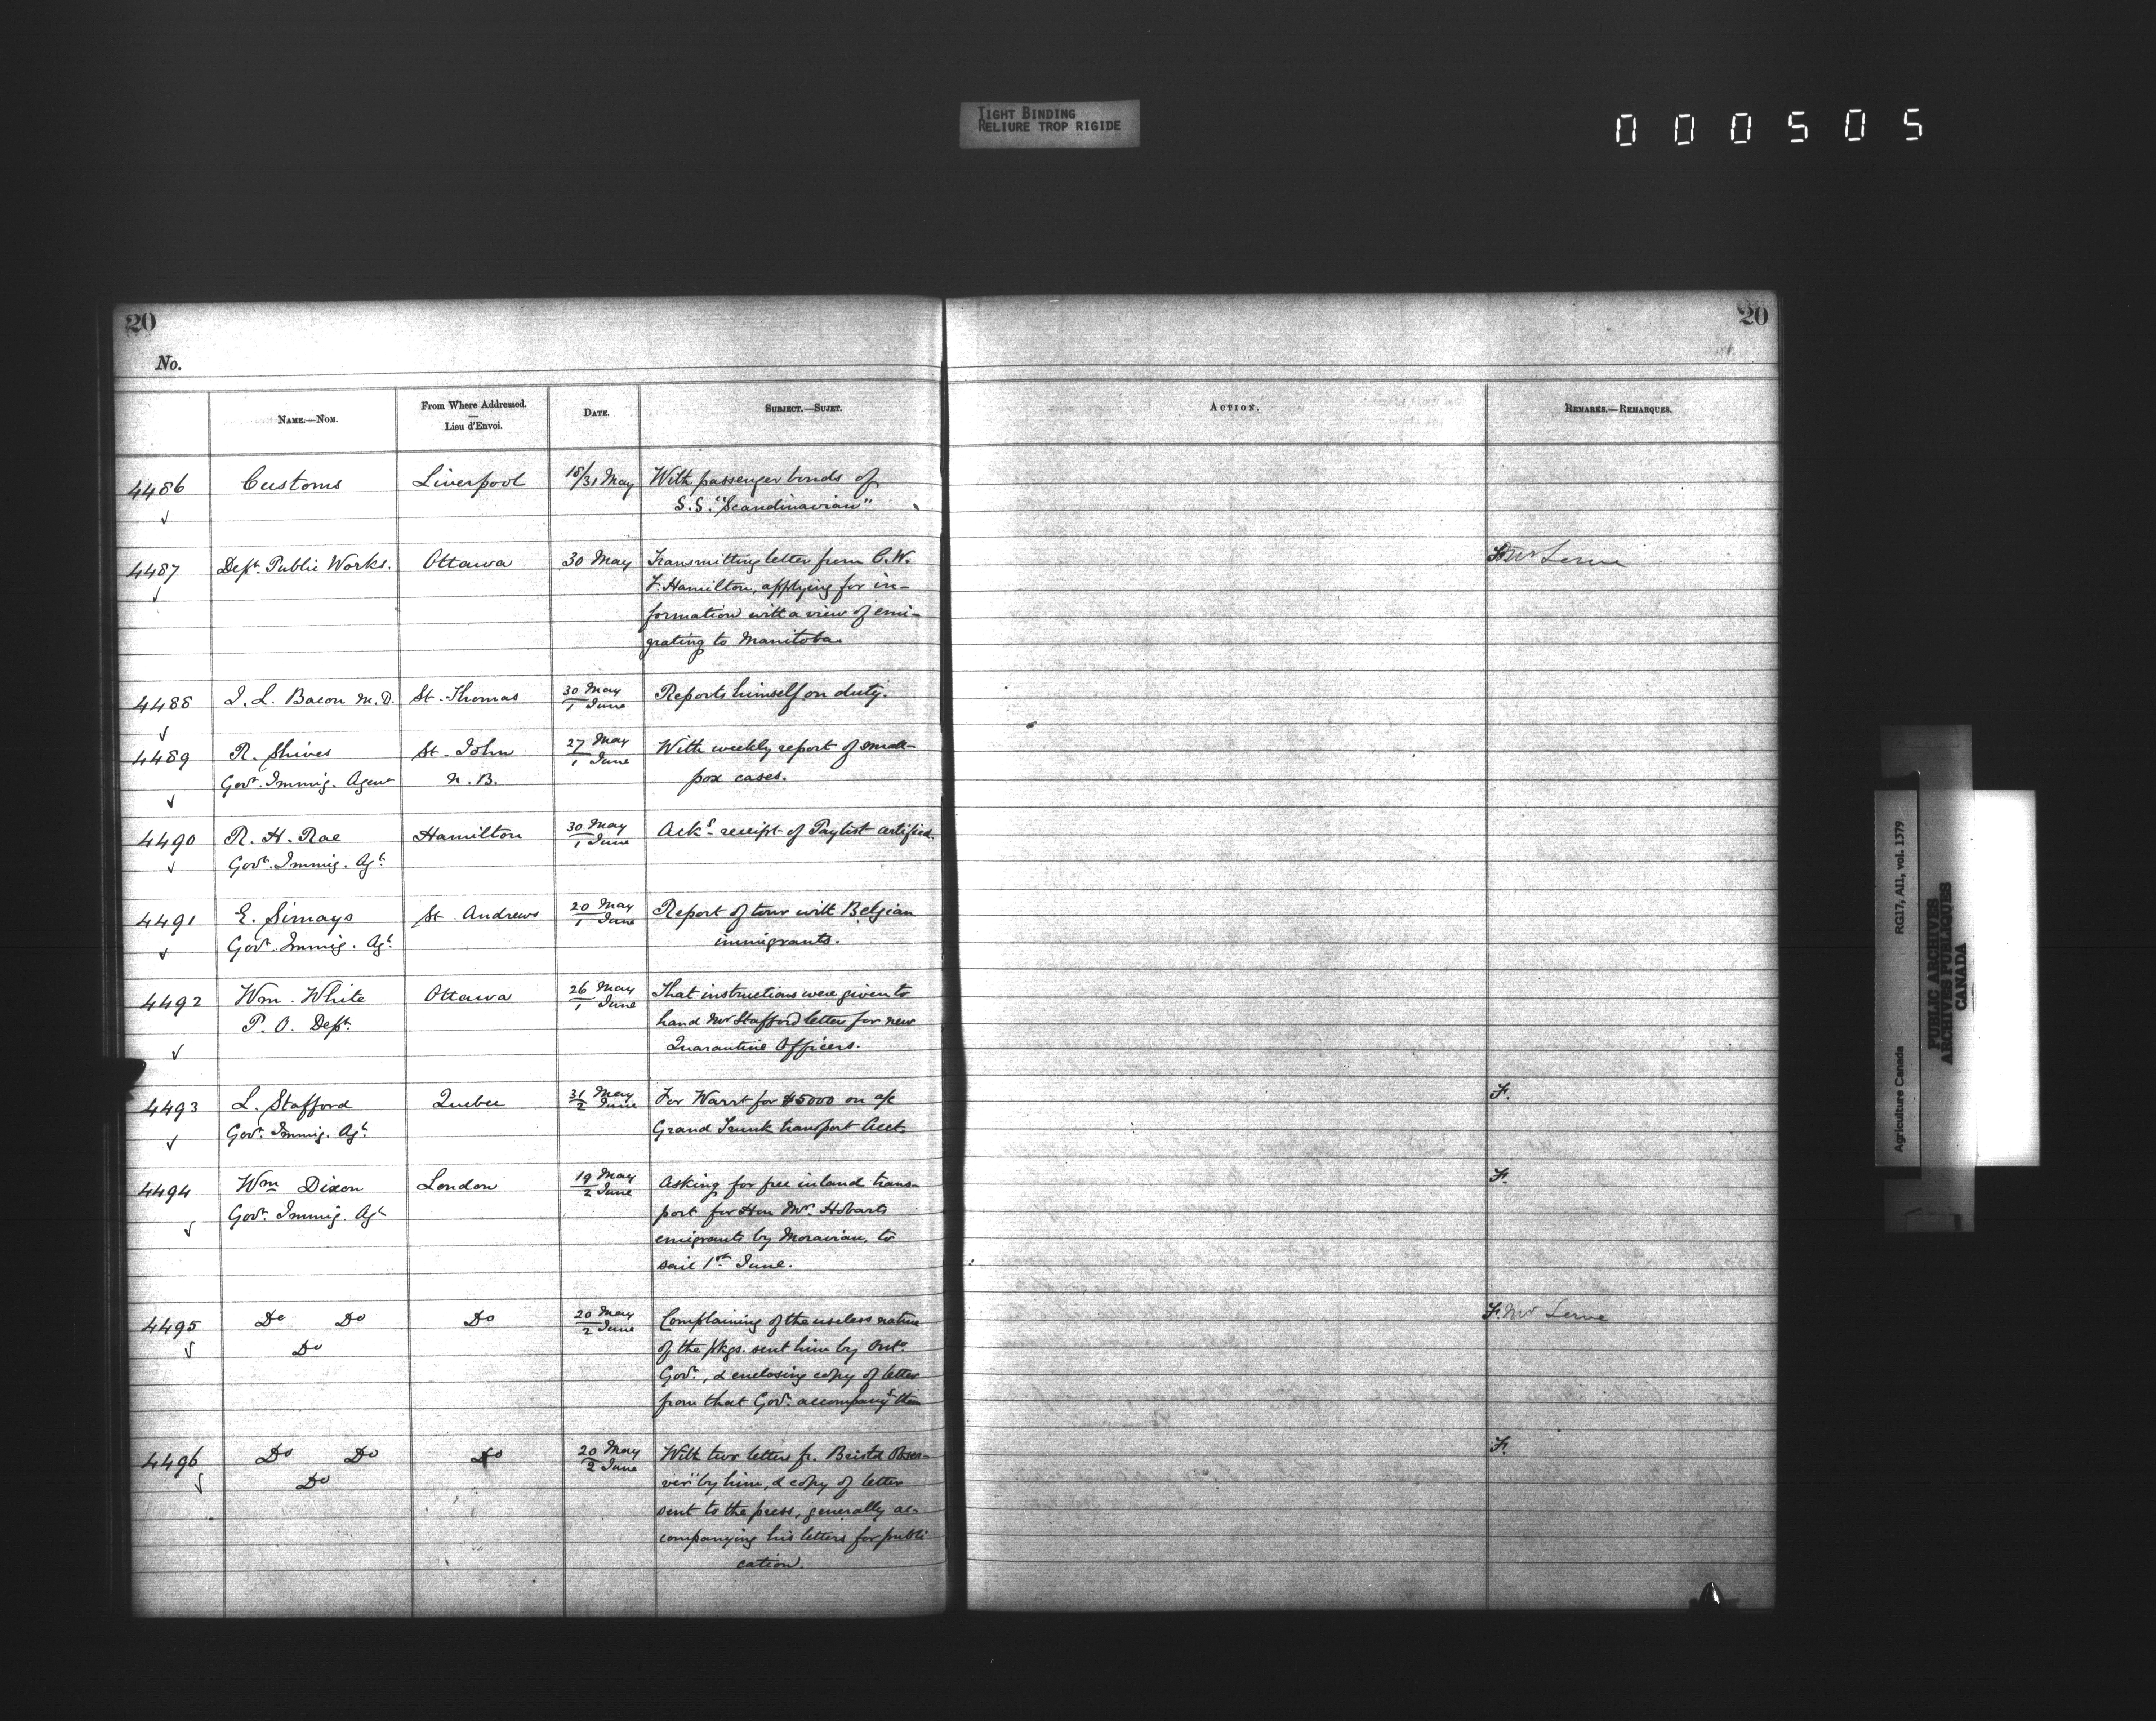 TIGHT BINDING
RELIURE TROP RIGIDE
000505
20
20
No.
NAME.—NOM.
From Where Addressed.
Lieu d'Envoi.
DATE.
SUBJECT.—SUJET.
ACTION.
REMARKS.—REMARQUES.
4486 Customs Liverpool 18/31 May With passenger bonds of
S.S. "Scandinavian"
4487 Dept. Public Works. Ottawa 30 May Transmitting letter from C.W.
F. Hamilton, applying for in-
formation with a view of emi-
grating to Manitoba.
4488 J. L. Bacon M.D. St. Thomas 30 May Reports himself on duty.
1 June
4489 R. Shives St. John 27 May With weekly report of small-
Govt. Immig. Agent N.B. 1 June pox cases.
4490 R. H. Rae Hamilton 30 May Acks. receipt of Paylist certified.
Govt. Immig. Agt. 1 June
4491 E. Simays St. Andrews 20 May Report of tour with Belgian
Govt. Immig. Agt. 1 June immigrants.
4492 Wm. White Ottawa 26 May That instructions were given to
P.O. Dept. 1 June hand Mr Stafford letter for new
Quarantine Officers.
4493 L. Stafford Quebec 31 May For Warrt for $5000 on a/c F.
Govt. Immig. Agt. 2 June Grand Trunk transport Acct.
4494 Wm Dixon London 19 May Asking for free inland trans- F.
Govt. Immig. Agt. 2 June port for Hon Mr. Hobarts
emigrants by Moravian, to
sail 1st June.
4495 Do Do Do 20 May Complaining of the useless nature F. Mr
Do 2 June of the pkgs. sent him by Onto.
Govt., & enclosing copy of letter
from that Govt. accompanyg them
4496 Do Do Do 20 May With two letters fr. Bristol Obser- F.
Do 2 June ver" by him, & copy of letter
sent to the press, generally ac-
companying his letters for publi
cation.
Agriculture Canada RG17, AII, vol. 1379
PUBLIC ARCHIVES
ARCHIVES PUBLIQUES
CANADA